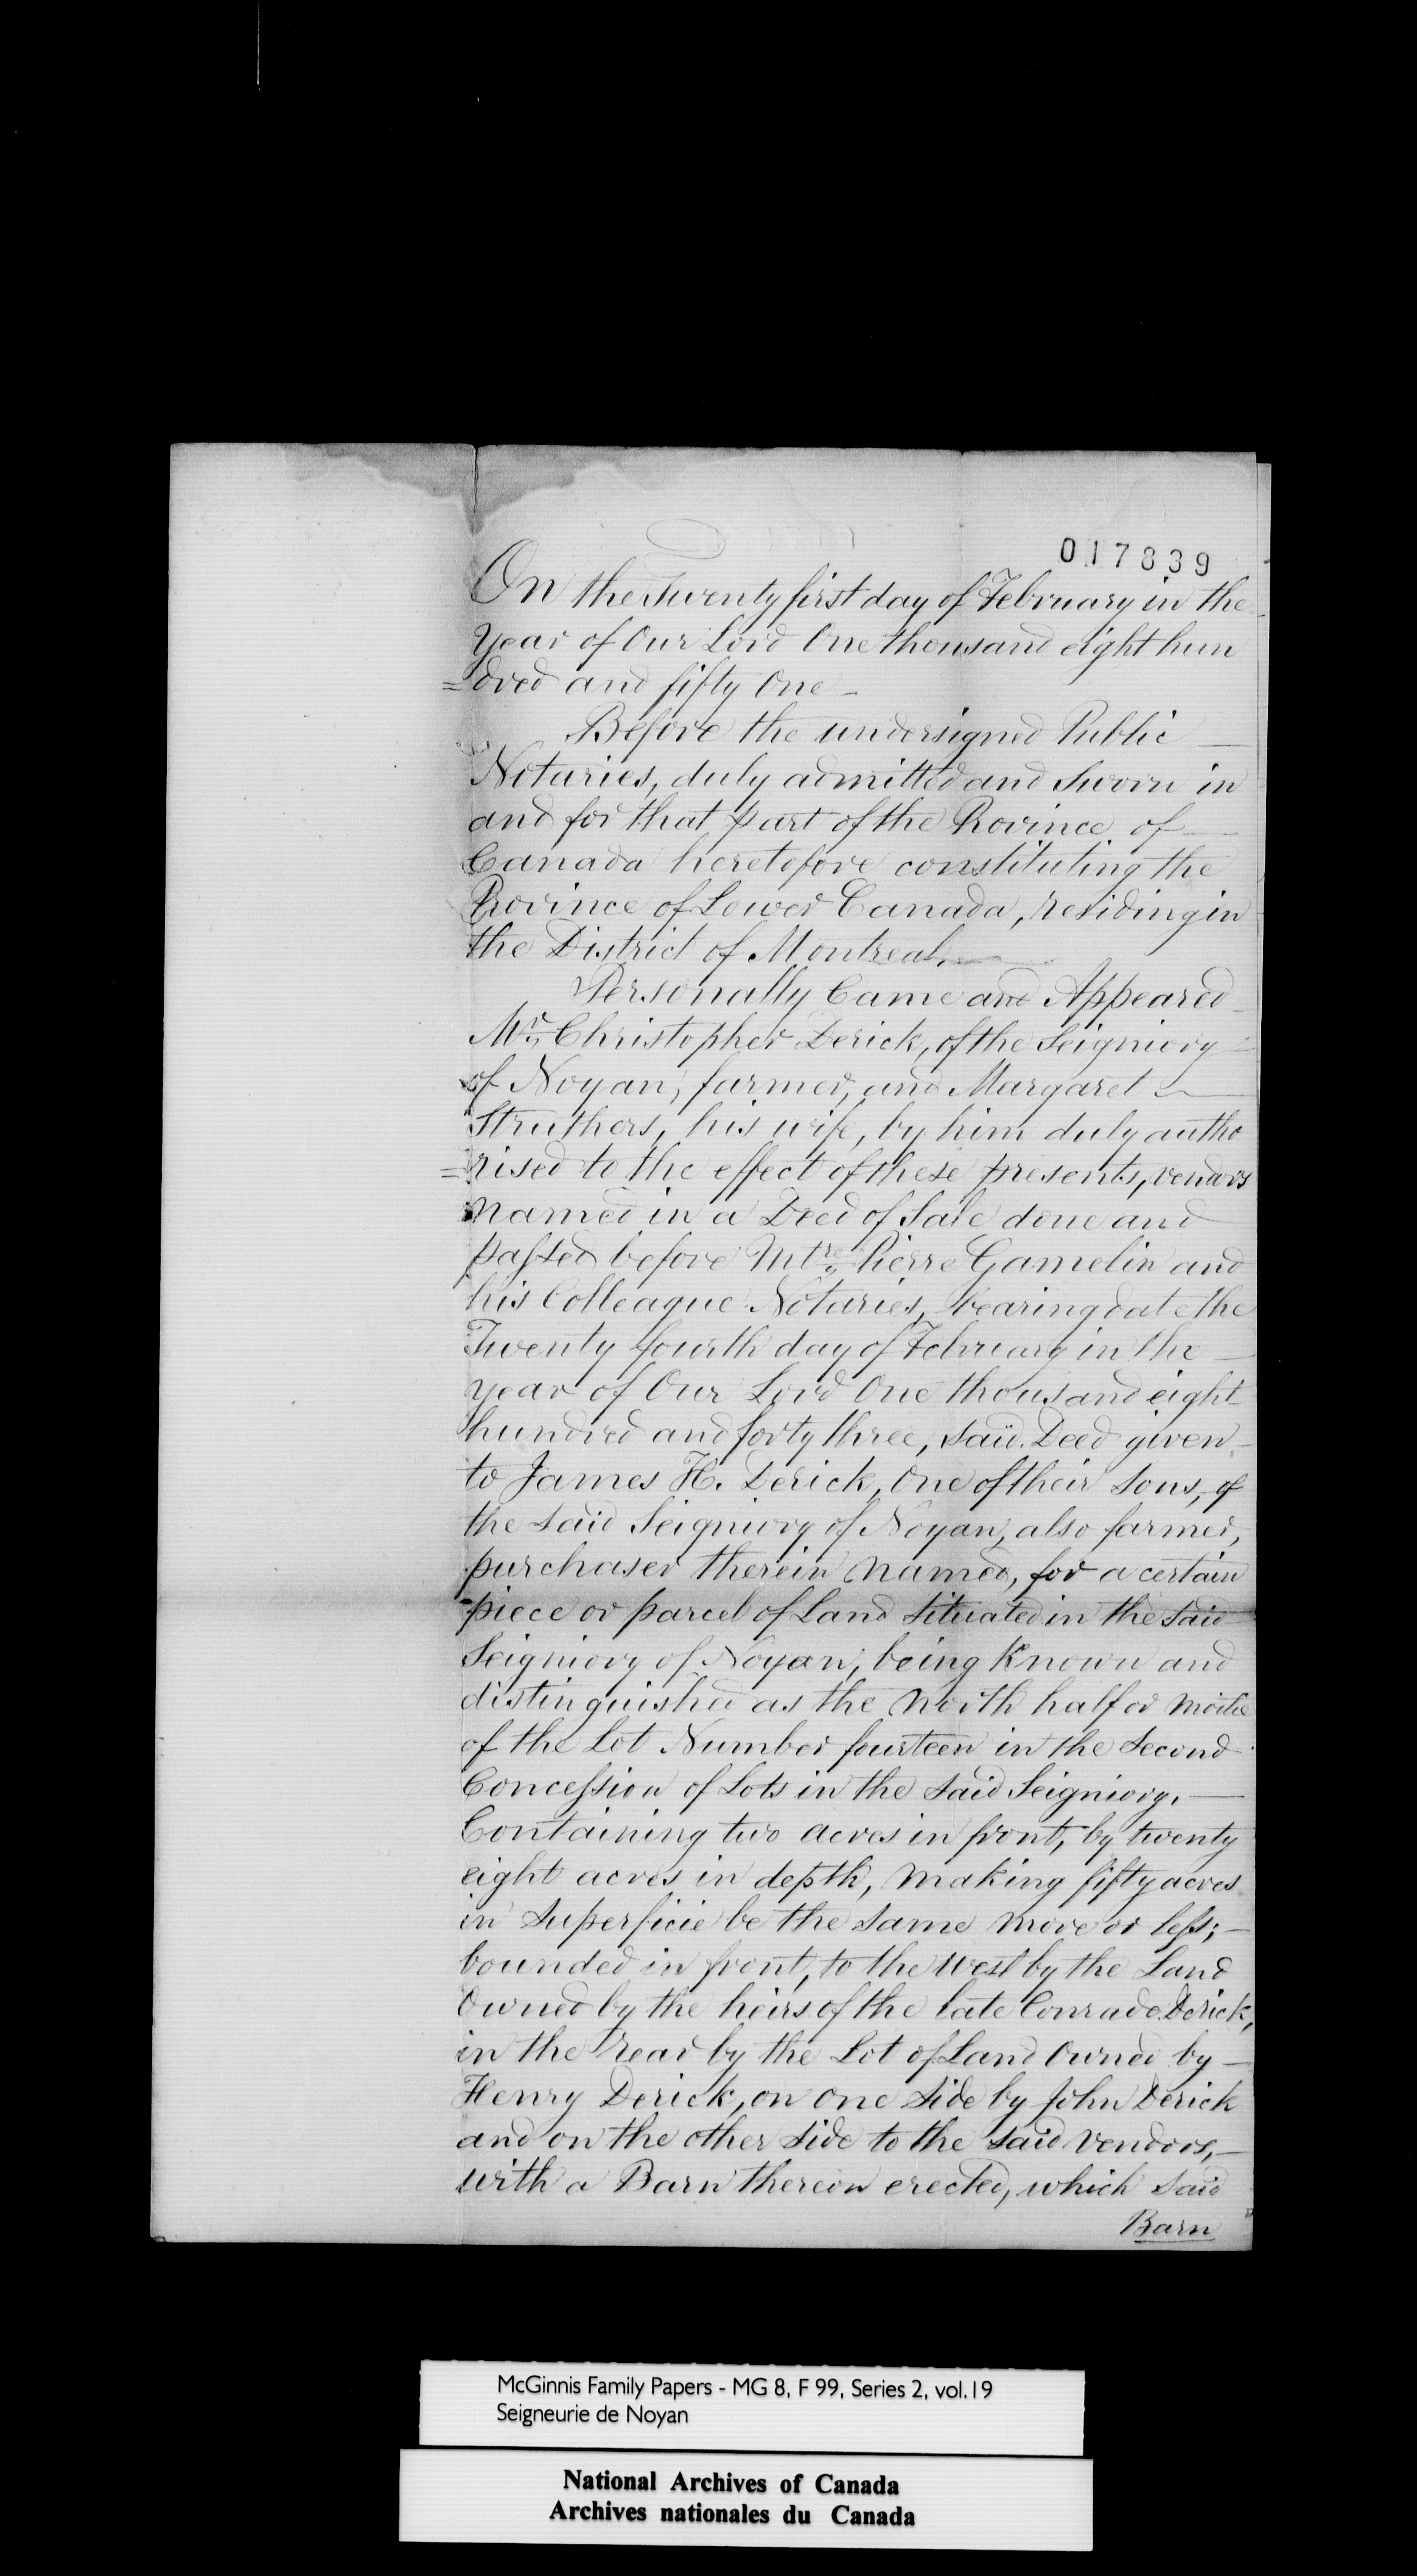 017839
On the Twenty first day of February in the
Year of Our Lord One thousand eight hun
=dred and fifty One -
Before the undersigned Public
Notaries, duly admitted and Sworn in
and for that part of the Province of
Canada heretofore constituting the
Province of Lower Canada, residing in
the District of Montreal,
Personally Came and Appeared
Mr. Christopher Derick, of the Seigniory
of Noyan, farmer, and Margaret
Struthers, his wife, by him duly autho
=rised to the effect of these presents, vendors
Named in a Deed of Sale done and
passed before Mtre Pierre Gamelin and
his Colleague Notaries, bearing date the
Twenty fourth day of February in the
year of Our Lord One thousand eight
hundred and forty three, said Deed given
to James H. Derick, One of their Sons, of
the said Seigniory of Noyan, also farmer,
purchaser therein Named, for a certain
piece or parcel of Land Situated in the said
Seigniory of Noyan, being Known and
distinguished as the North half or moitié
of the Lot Number fourteen in the Second
Concession of Lots in the said Seigniory.
Containing two acres in front, by twenty
eight acres in depth, Making fifty acres
in Superficie be the same more or less;
bounded in front, to the West by the Land
Owned by the heirs of the late Conrade Derick,
in the rear by the Lot of Land Owned by
Henry Derick, on one Side by John Derick
and on the other Side to the said vendors,
with a Barn thereon erected, which said
Barn
McGinnis Family Papers - MG 8, F 99, Series 2, vol.19
Seigneurie de Noyan
National Archives of Canada
Archives nationales du Canada